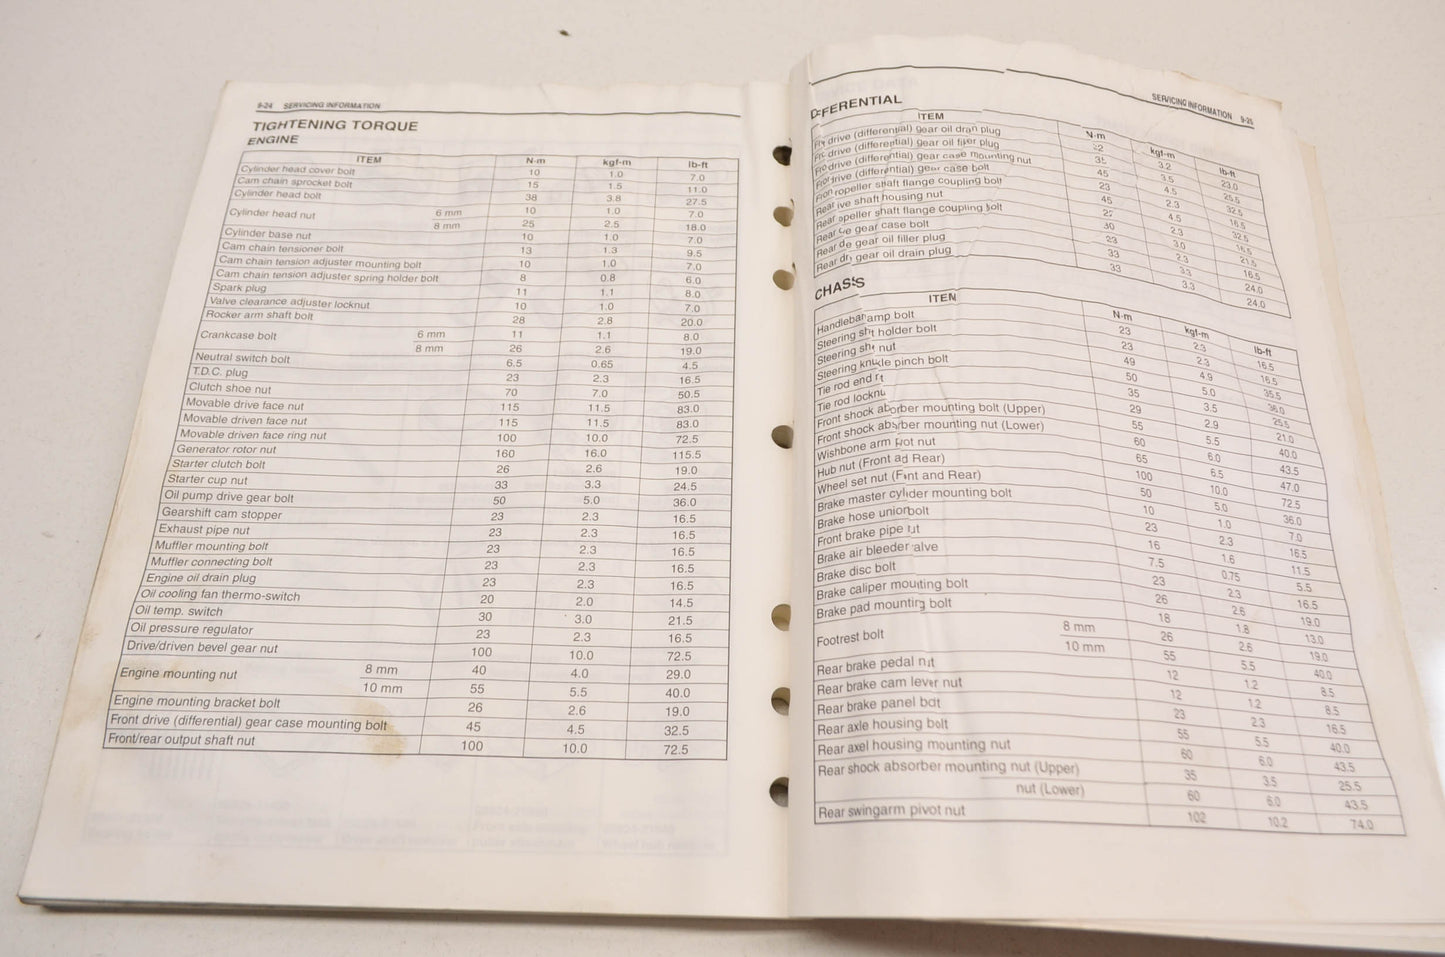 9-24 SERVICING INFORMATION
TIGHTENING TORQUE
ENGINE
ITEM N·m kgf-m lb-ft
Cylinder head cover bolt 10 1.0 7.0
Cam chain sprocket bolt 15 1.5 11.0
Cylinder head bolt 38 3.8 27.5
Cylinder head nut 6 mm 10 1.0 7.0
8 mm 25 2.5 18.0
Cylinder base nut 10 1.0 7.0
Cam chain tensioner bolt 13 1.3 9.5
Cam chain tension adjuster mounting bolt 10 1.0 7.0
Cam chain tension adjuster spring holder bolt 8 0.8 6.0
Spark plug 11 1.1 8.0
Valve clearance adjuster locknut 10 1.0 7.0
Rocker arm shaft bolt 28 2.8 20.0
Crankcase bolt 6 mm 11 1.1 8.0
8 mm 26 2.6 19.0
Neutral switch bolt 6.5 0.65 4.5
T.D.C. plug 23 2.3 16.5
Clutch shoe nut 70 7.0 50.5
Movable drive face nut 115 11.5 83.0
Movable driven face nut 115 11.5 83.0
Movable driven face ring nut 100 10.0 72.5
Generator rotor nut 160 16.0 115.5
Starter clutch bolt 26 2.6 19.0
Starter cup nut 33 3.3 24.5
Oil pump drive gear bolt 50 5.0 36.0
Gearshift cam stopper 23 2.3 16.5
Exhaust pipe nut 23 2.3 16.5
Muffler mounting bolt 23 2.3 16.5
Muffler connecting bolt 23 2.3 16.5
Engine oil drain plug 23 2.3 16.5
Oil cooling fan thermo-switch 20 2.0 14.5
Oil temp. switch 30 3.0 21.5
Oil pressure regulator 23 2.3 16.5
Drive/driven bevel gear nut 100 10.0 72.5
Engine mounting nut 8 mm 40 4.0 29.0
10 mm 55 5.5 40.0
Engine mounting bracket bolt 26 2.6 19.0
Front drive (differential) gear case mounting bolt 45 4.5 32.5
Front/rear output shaft nut 100 10.0 72.5
SERVICING INFORMATION 9-25
DIFFERENTIAL
ITEM N·m kgf-m lb-ft
drive (differential) gear oil drain plug 3.2 23.0
drive (differential) gear oil filler plug 35 3.5 25.5
drive (differential) gear case mounting nut 45 4.5 32.5
drive (differential) gear case bolt 23 2.3 16.5
propeller shaft flange coupling bolt 45 4.5 32.5
Rear drive shaft housing nut 23 2.3 16.5
Rear propeller shaft flange coupling bolt 30 3.0 21.5
Rear gear case bolt 23 2.3 16.5
Rear gear oil filler plug 33 3.3 24.0
Rear gear oil drain plug 33 3.3 24.0
CHASSIS
ITEM N·m kgf-m lb-ft
Handlebar clamp bolt 23 2.3 16.5
Steering shaft holder bolt 23 2.3 16.5
Steering shaft nut 49 4.9 35.5
Steering knuckle pinch bolt 50 5.0 36.0
Tie rod end nut 35 3.5 25.5
Tie rod locknut 29 2.9 21.0
Front shock absorber mounting bolt (Upper) 55 5.5 40.0
Front shock absorber mounting nut (Lower) 60 6.0 43.5
Wishbone arm pivot nut 65 6.5 47.0
Hub nut (Front and Rear) 100 10.0 72.5
Wheel set nut (Front and Rear) 50 5.0 36.0
Brake master cylinder mounting bolt 10 1.0 7.0
Brake hose union bolt 23 2.3 16.5
Front brake pipe nut 16 1.6 11.5
Brake air bleeder valve 7.5 0.75 5.5
Brake disc bolt 23 2.3 16.5
Brake caliper mounting bolt 26 2.6 19.0
Brake pad mounting bolt 18 1.8 13.0
Footrest bolt 8 mm 26 2.6 19.0
10 mm 55 5.5 40.0
Rear brake pedal nut 12 1.2 8.5
Rear brake cam lever nut 12 1.2 8.5
Rear brake panel bolt 23 2.3 16.5
Rear axle housing bolt 55 5.5 40.0
Rear axel housing mounting nut 60 6.0 43.5
Rear shock absorber mounting nut (Upper) 35 3.5 25.5
nut (Lower) 60 6.0 43.5
Rear swingarm pivot nut 102 10.2 74.0